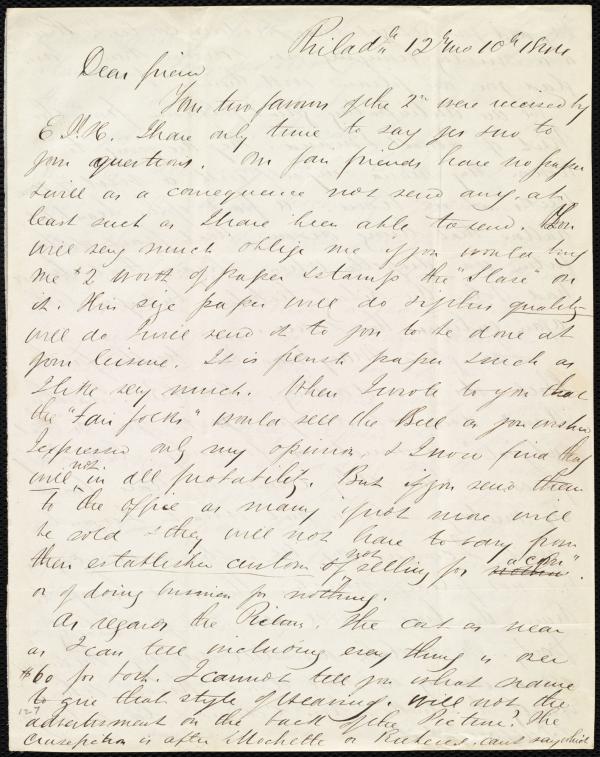 Philadᵃ 12 mo 10th 1844
Dear friend
Your two favours of the 2nd were received by
E. P. H. I have only time to say yes sno to
your questions. Our fair friends have no paper
I will as a consequence not send any, at
least such as I have been able to send. You
will very much oblige me if you would buy
me $2 worth of paper & stamp the "Slave" on
it. This size paper will do if this quality
will do I will send it to you to be done at
your leisure. It is French paper such as
I like very much. When I wrote to you that
the "Fair folks" would sell the Bell as you wished
I expressed only my opinion, & I now find they
will not in all probability. But if you send them
to the office as many if not more will
be sold & they will not have to vary from
their established custom of not selling for "a com".
or of doing business for nothing.
As regards the Picture. The cost as near
as I can tell including every thing is over
$60 for both. I cannot tell you what name
to give that style of . Will not the
advertisment on the back of the Picture? The
127
Crucifiction is after or Rubens. cant say which